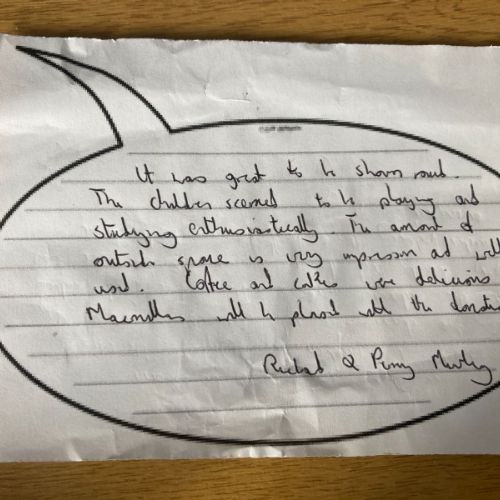 It was great to be shown round.
The children seemed to be playing and
studying enthusiastically. The amount of
outside space is very impressive and well
used. Coffee and cakes were delicious
Macmillan will be pleased with the donation
Richard & Penny